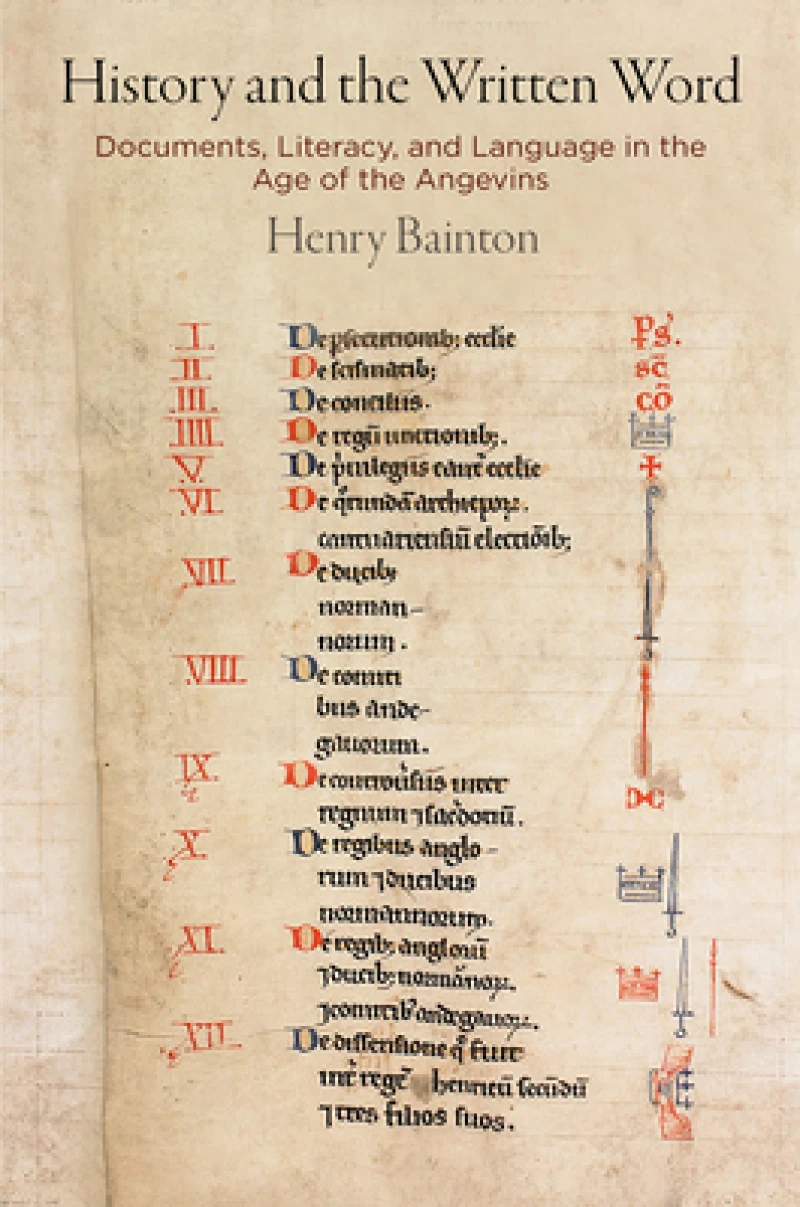 History and the Written Word
Documents, Literacy, and Language in the
Age of the Angevins
Henry Bainton
I. De ꝑsecutionibꝫ ecclie Ps'.
II. De scismatibꝫ sc̄
III. De conciliis. cō
IIII. De regū unctionibꝫ.
V. De p̓uilegiis cant̓ ecclie +
VI. De q̓rundā archiepoꝝ.
cantuariensiū electiōibꝫ
VII. De ducibꝫ
norman-
norum.
VIII. De comiti
bus ande-
gauorum.
IX. De controu̓siis inter
regnum ⁊ sac̓dotiū.
X. De regibus anglo-
rum ⁊ ducibus
normannorum.
XI. De regibꝫ angloꝝ
⁊ ducibꝫ normānoꝝ.
⁊ comitibꝰ andegauoꝝ.
XII. De dissensione q̄ fuit
int̓ regē henricū secūdū
⁊ tres filios suos.